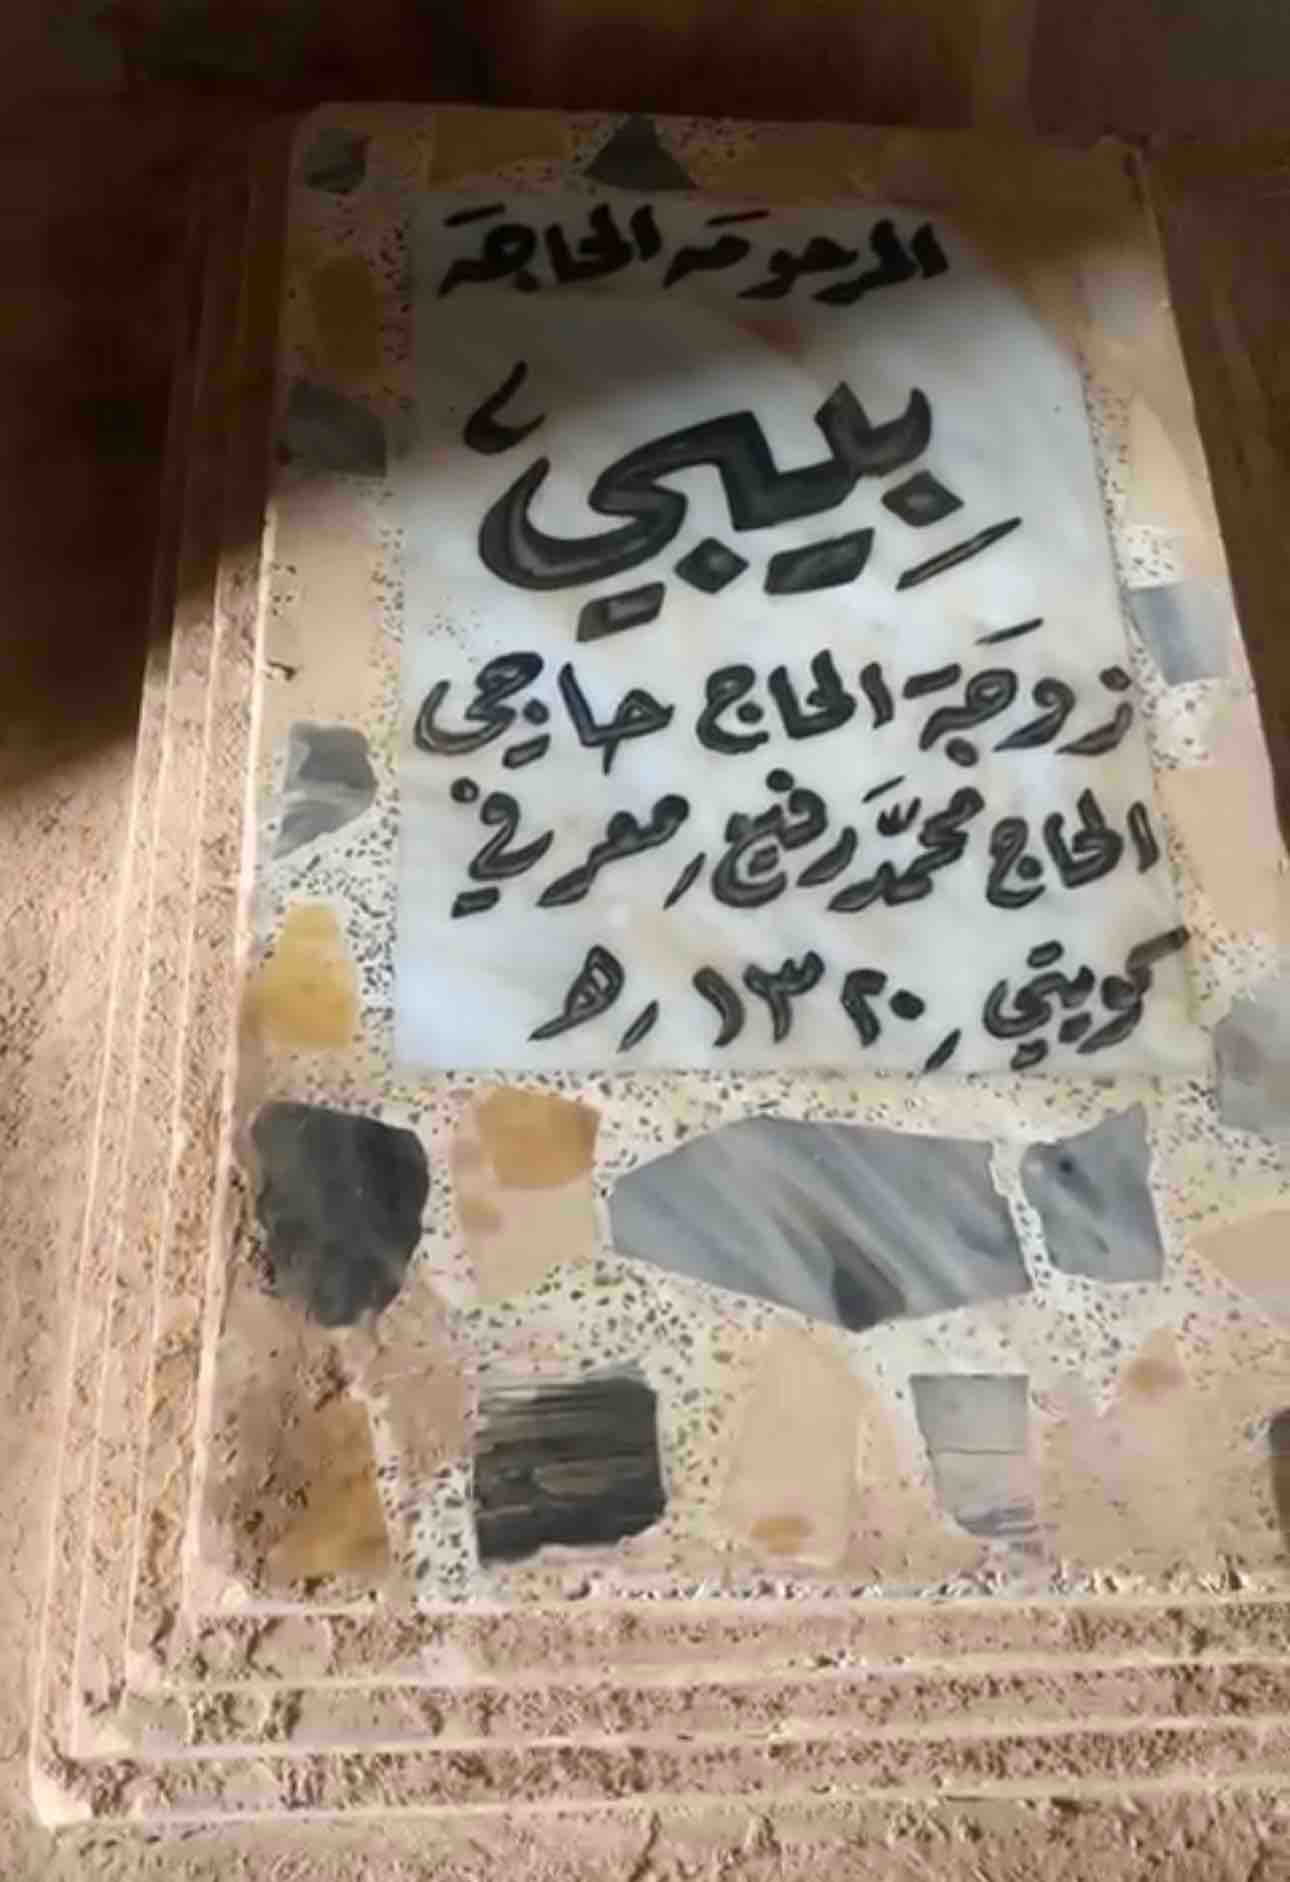 المرحومَه الحاجَة
بِيبي
زوجَة الحاج حاجي
الحاج محمّد رفيع معرفي
كويتي ١٣٢٠ هـ